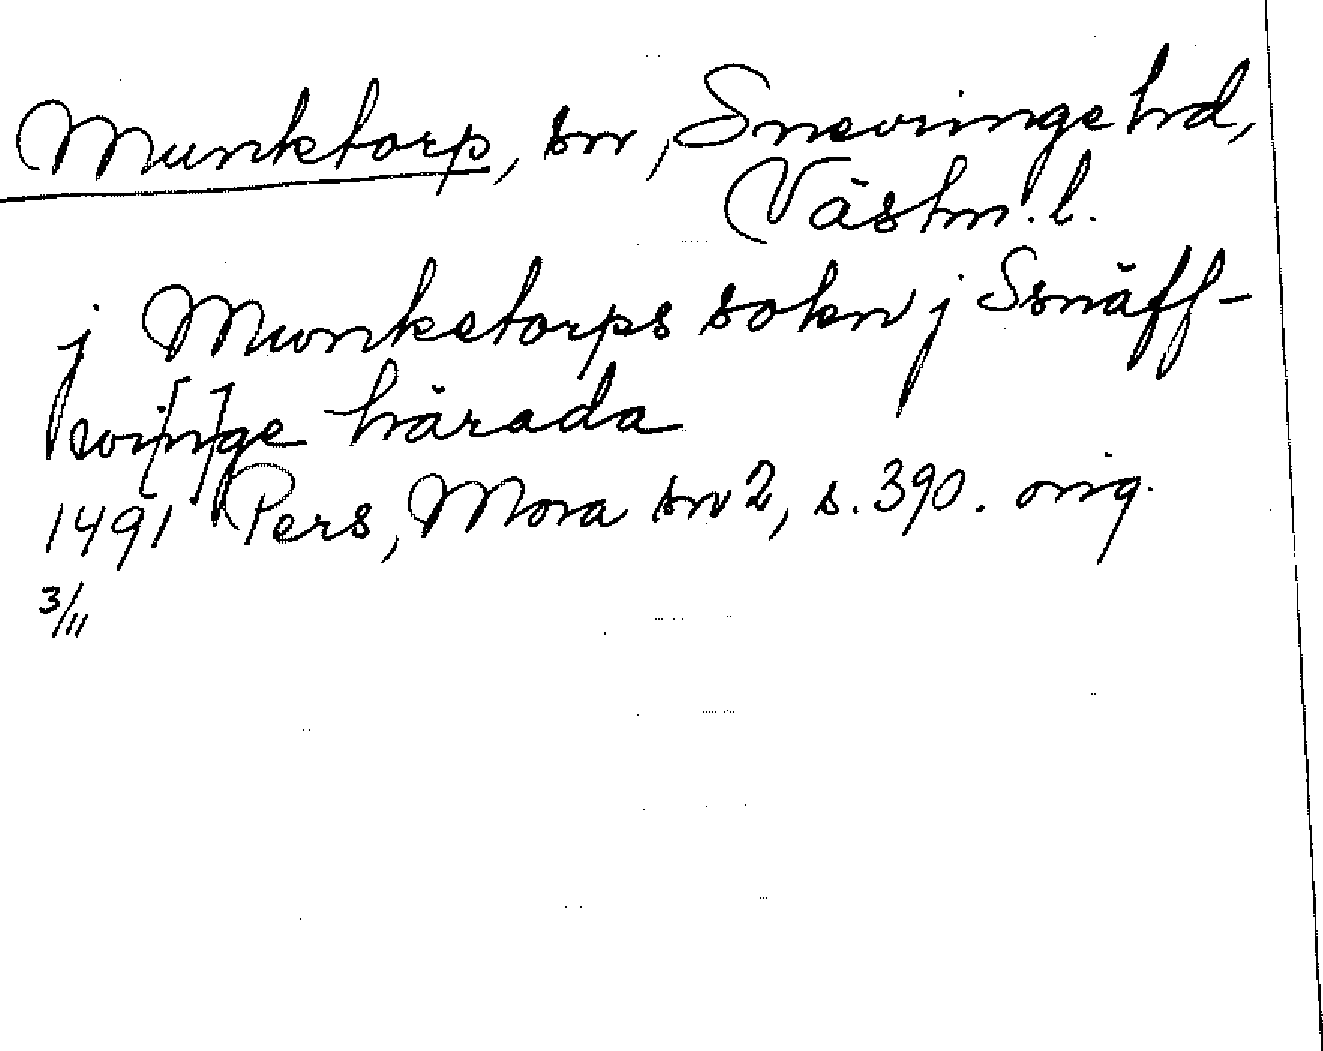 Munktorp, sn, Snevringe hd,
Västm. l.
j Munketorps sokn j Ssnäff-
wi[n]ge härada
1491 Pers, Mora sn 2, s. 390. orig.
3/11